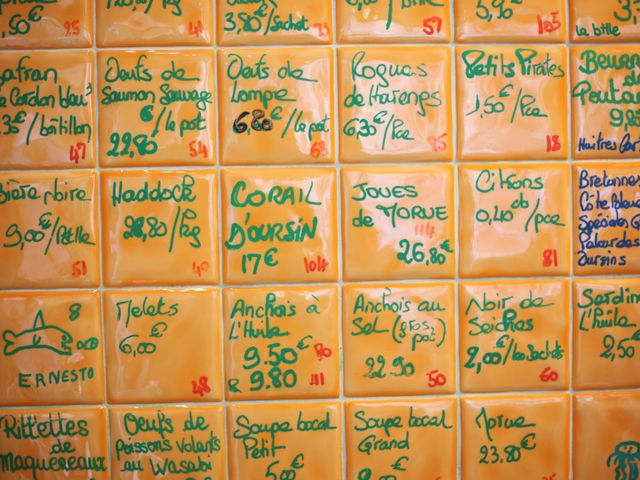 3,80€/Sachet
57
5,90€
105
le btlle
Safran
le Cordon bleu
3€/bôtillon
47
Oeufs de
Saumon Sauvage
€/le pot
22,80
54
Oeufs de
Lompe
6,80€/le pot
68
Rogues
de Harengs
6,30€/Pce
95
Petits Pirates
1,50€/Pce
18
Beurre
Huitres
Bière noire
9,00€/Btelle
51
Haddock
28,80/Kg
40
CORAIL
D'OURSIN
17€
104
JOUES
de MORUE
114
26,80€
Citrons
0,40cts/pce
81
Bretonnes
Côte Bleue
Spéciales G
Palourdes
Oursins
8
ERNESTO
Melets
6,00€
48
Anchois à
L'Huile
9.50€ 80
R 9.80 111
Anchois au
Sel (gros
pot)
22.90
50
Noir de
Seiches
2,00€/les Sachets
60
Sardin
L'huile
2,50€
Rittettes
de
Maquereaux
Oeufs de
Poissons Volants
au Wasabi
Soupe bocal
Petit
5,00€
Soupe bocal
Grand
Morue
23.80€